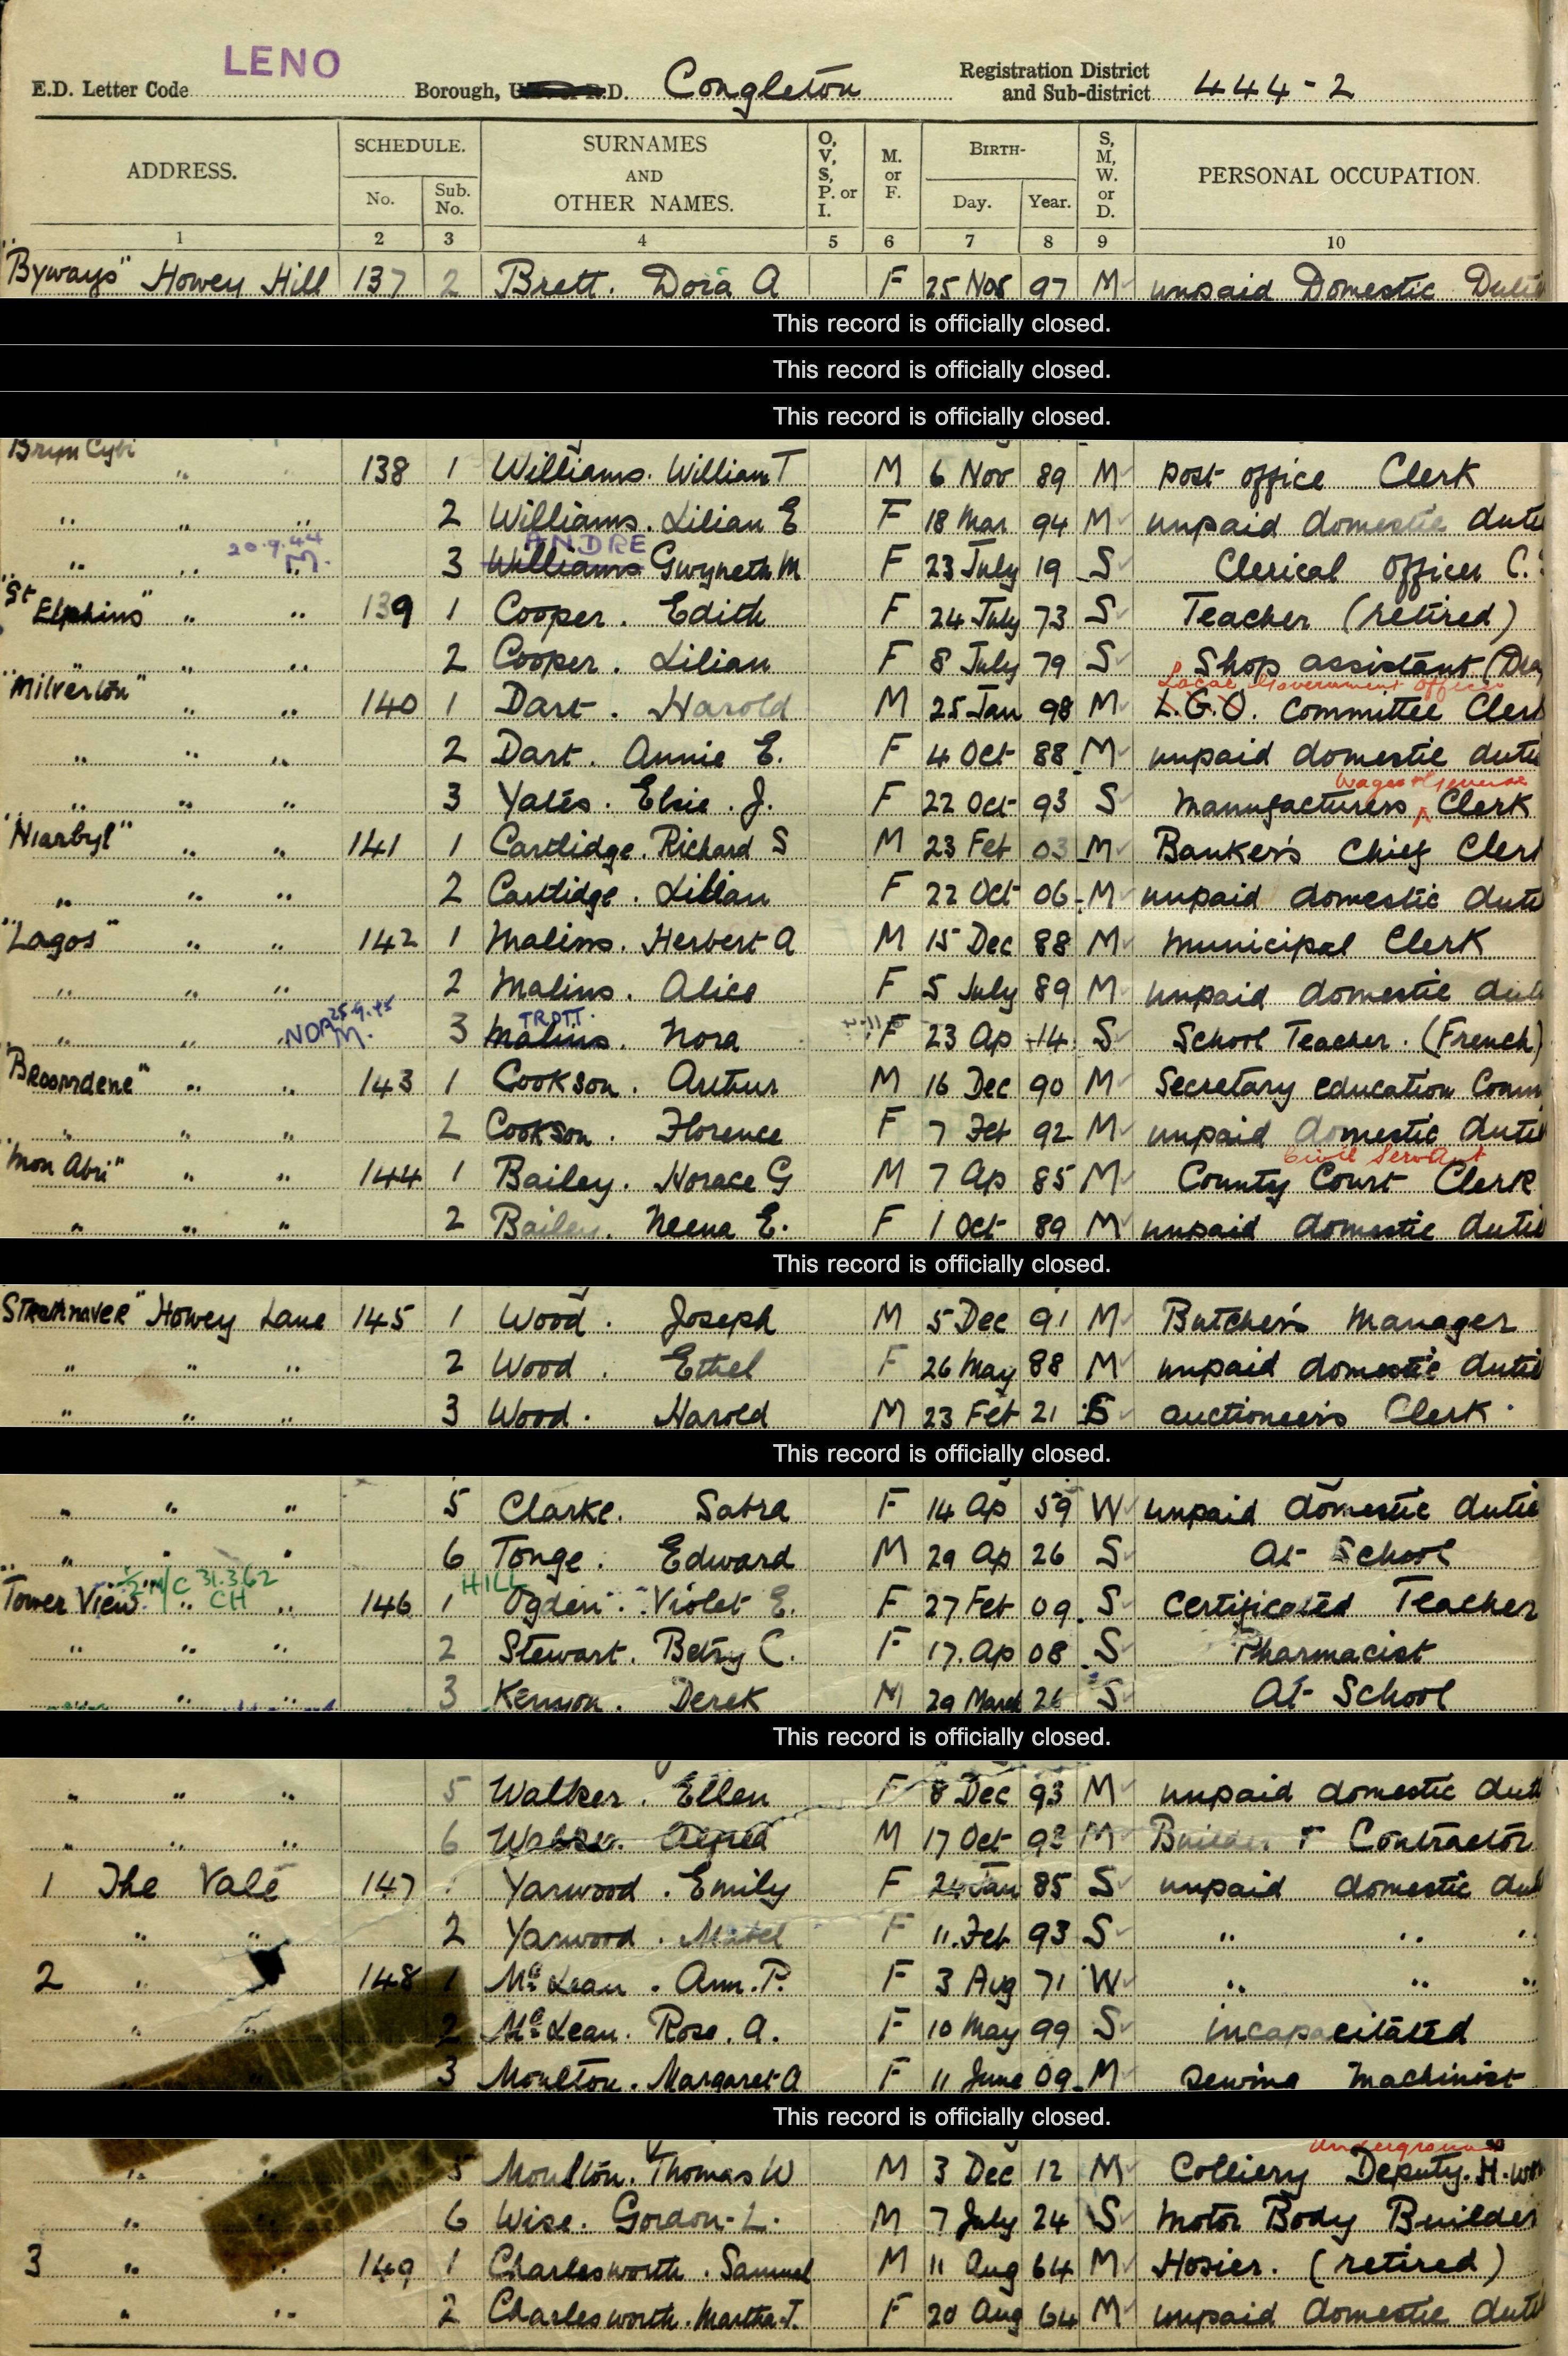 LENO
E.D. Letter Code Borough, D. Congleton Registration District and Sub-district 444-2
ADDRESS. SCHEDULE. No. Sub. No. SURNAMES AND OTHER NAMES. O, V, S, P. or I. M. or F. BIRTH- Day. Year. S, M, W. or D. PERSONAL OCCUPATION.
1 2 3 4 5 6 7 8 9 10
"Byways" Howey Hill 137 2 Brett. Dora A F 25 Nov 97 M unpaid Domestic Dutie
This record is officially closed.
This record is officially closed.
This record is officially closed.
Bryn Cybi " 138 1 Williams. William T M 6 Nov 89 M post office Clerk
" " " 2 Williams. Lilian E F 18 Mar 94 M unpaid domestic dutie
20.9.44 ANDRE
" " M. 3 Williams Gwyneth M F 23 July 19 S Clerical officer C.
"St Elphins" " " 139 1 Cooper. Edith F 24 July 73 S Teacher (retired)
" " " 2 Cooper. Lilian F 8 July 79 S Shop assistant (Dra
Local Government Officer
"Milverton" " " 140 1 Dart. Harold M 25 Jan 98 M L.G.O. Committee Clerk
" " " 2 Dart. Annie E. F 4 Oct 88 M unpaid domestic dutie
Wages
" " " 3 Yates. Elsie. J. F 22 Oct 93 S Manufacturers Clerk
"Niarbyl" " " 141 1 Cartlidge. Richard S M 23 Feb 03 M Banker's Chief Clerk
" " " 2 Cartlidge. Lilian F 22 Oct 06 M unpaid domestic dutie
"Lagos" " " 142 1 Malins. Herbert A M 15 Dec 88 M Municipal Clerk
" " " 2 Malins. Alice F 5 July 89 M unpaid domestic duti
25.9.45 TROTT.
" " NOA M. 3 Malins. Nora F 23 Ap 14 S School Teacher. (French)
"Broomdene" " " 143 1 Cookson. Arthur M 16 Dec 90 M Secretary education Comm
" " " 2 Cookson. Florence F 7 Feb 92 M unpaid domestic dutie
Civil Servant
"Mon Abri" " " 144 1 Bailey. Horace G M 7 Ap 85 M County Court Clerk
" " " 2 Bailey. Neena E. F 1 Oct 89 M unpaid domestic dutie
This record is officially closed.
Strathnaver" Howey Lane 145 1 Wood. Joseph M 5 Dec 91 M Butcher's Manager
" " " 2 Wood. Ethel F 26 May 88 M unpaid domestic dutie
" " " 3 Wood. Harold M 23 Feb 21 S auctioneers Clerk
This record is officially closed.
" " " 5 Clarke. Sabra F 14 Ap 59 W unpaid domestic dutie
" " " 6 Tonge. Edward M 29 Ap 26 S At School
M/C 31.3.62 CH HILL
Tower View" " " 146 1 Ogden. Violet E. F 27 Feb 09 S Certificated Teacher
" " " 2 Stewart. Betsy C. F 17. Ap 08 S Pharmacist
" " 3 Kenyon. Derek M 29 March 26 S At School
This record is officially closed.
" " " 5 Walker. Ellen F 8 Dec 93 M unpaid domestic duti
" " " 6 Walker. Alfred M 17 Oct 93 M Builder & Contractor
1 The Vale 147 Yarwood. Emily F 24 Jan 85 S unpaid domestic dut
" " 2 Yarwood. Mabel F 11. Feb 93 S " " "
2 " 148 1 McLean. Ann. P. F 3 Aug 71 W " " "
" 2 McLean. Rose. A. F 10 May 99 S incapacitated
3 Moulton. Margaret A F 11 June 09 M Sewing Machinist
This record is officially closed.
Underground
" " 5 Moulton. Thomas W M 3 Dec 12 M Colliery Deputy. H. wor
" 6 Wise. Gordon. L. M 7 July 24 S Motor Body Builder
3 " " 149 1 Charlesworth. Samuel M 11 Aug 64 M Hosier. (retired)
" " 2 Charlesworth. Martha. J. F 20 Aug 64 M unpaid domestic dutie